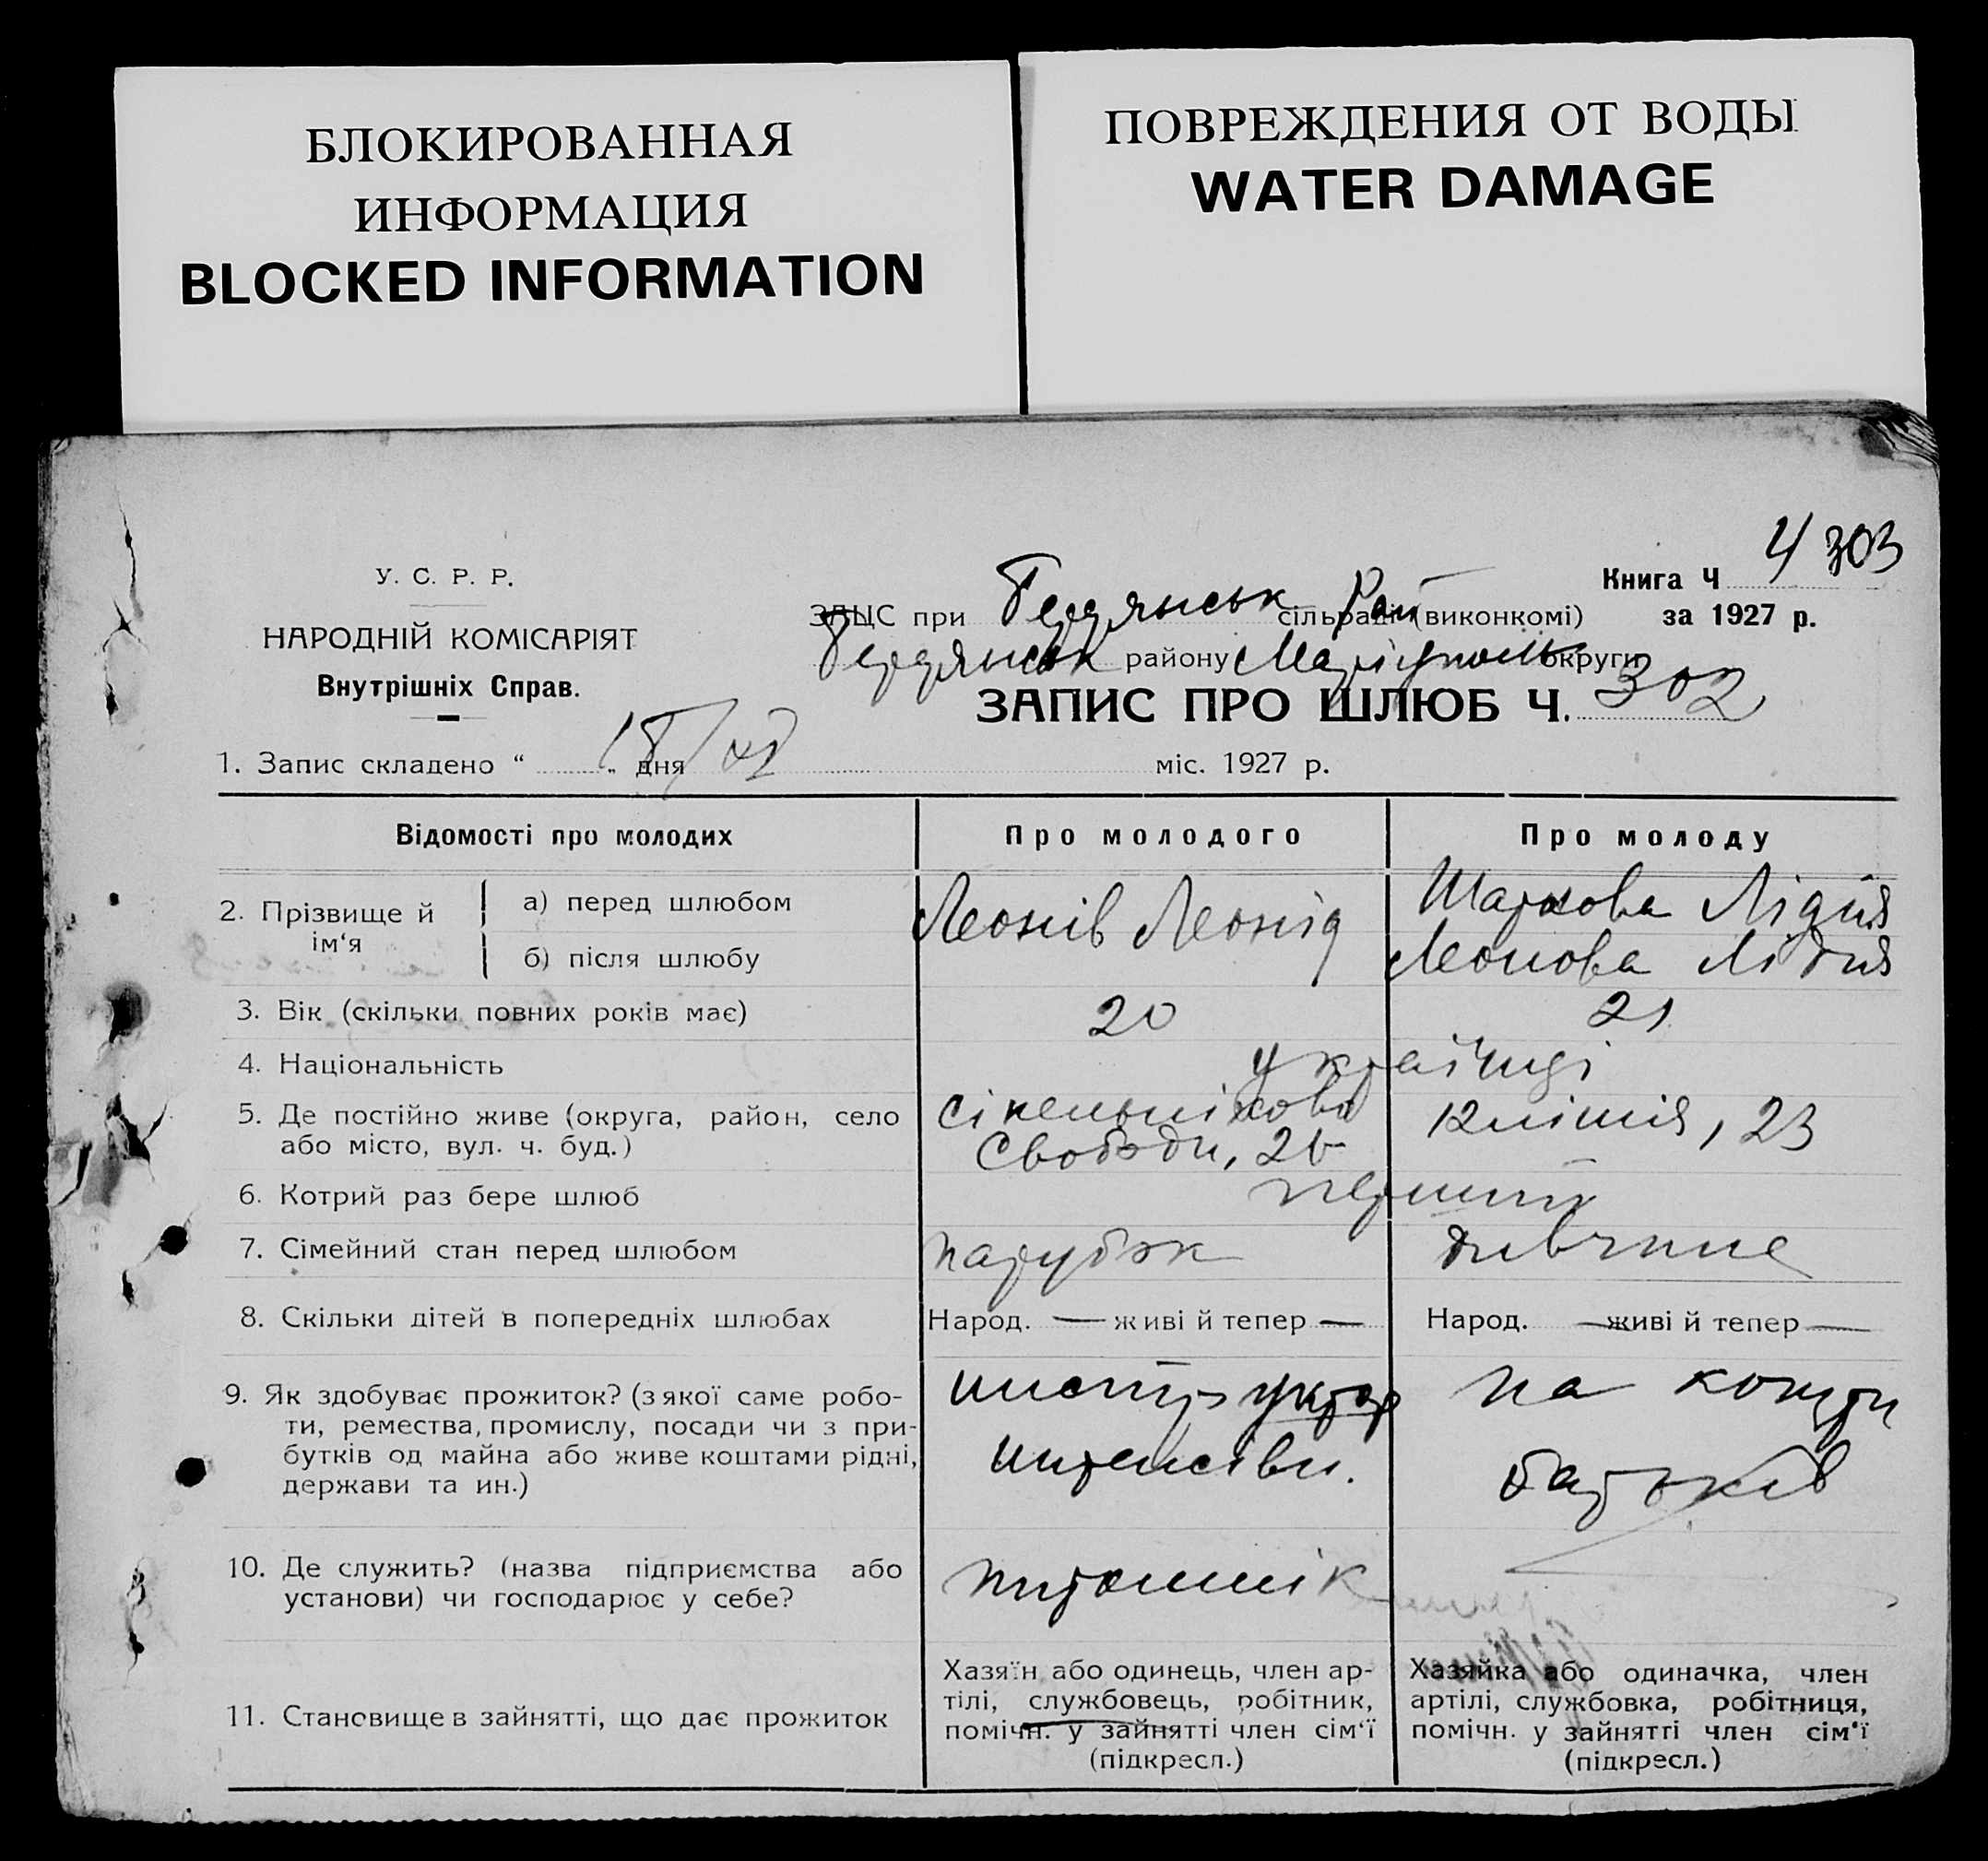 БЛОКИРОВАННАЯ
ИНФОРМАЦИЯ
BLOCKED INFORMATION
ПОВРЕЖДЕНИЯ ОТ ВОДЫ
WATER DAMAGE
4 303
У. С. Р. Р.
НАРОДНІЙ КОМІСАРІЯТ
Внутрішніх Справ.
Книга Ч
за 1927 р.
ЗАЦС при Бердянськ сільраді Рай (виконкомі)
Бердянськ району Маріуполь округи
ЗАПИС ПРО ШЛЮБ Ч. 302
1. Запис складено “ дня міс. 1927 р.
Відомості про молодих
Про молодого
Про молоду
2. Прізвище й ім‘я
а) перед шлюбом
Леонів Леонід
Шаркова Лідія
б) після шлюбу
Леонова Лідия
3. Вік (скільки повних років має)
20
21
4. Національність
українці
5. Де постійно живе (округа, район, село
або місто, вул. ч. буд.)
Сінельнікова
Свободи, 26
12 , 23
6. Котрий раз бере шлюб
перший
7. Сімейний стан перед шлюбом
парубок
дивчина
8. Скільки дітей в попередніх шлюбах
Народ. — живі й тепер —
Народ. — живі й тепер —
9. Як здобуває прожиток? (з якої саме робо-
ти, ремества, промислу, посади чи з при-
бутків од майна або живе коштами рідні,
держави та ин.)
инструктор
на кошти
батьків
10. Де служить? (назва підприємства або
установи) чи господарює у себе?
11. Становище в зайнятті, що дає прожиток
Хазяїн або одинець, член ар-
тілі, службовець, робітник,
помічн. у зайнятті член сім‘ї
(підкресл.)
Хазяйка або одиначка, член
артілі, службовка, робітниця,
помічн. у зайнятті член сім‘ї
(підкресл.)